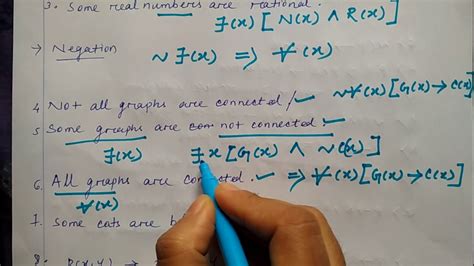 3. Some real numbers are rational.
∃(x) [N(x) ∧ R(x)]
→ Negation ~∃(x) ⇒ ∀(x)
4 Not all graphs are connected / ✓ ~∀(x)[G(x) → C(x)]
5 Some graphs are not connected ✓
∃(x) ∃x [G(x) ∧ ~C(x)]
6. All graphs are connected. ✓ ⇒ ∀(x)[G(x) → C(x)]
∀(x)
7. Some cats are
8.